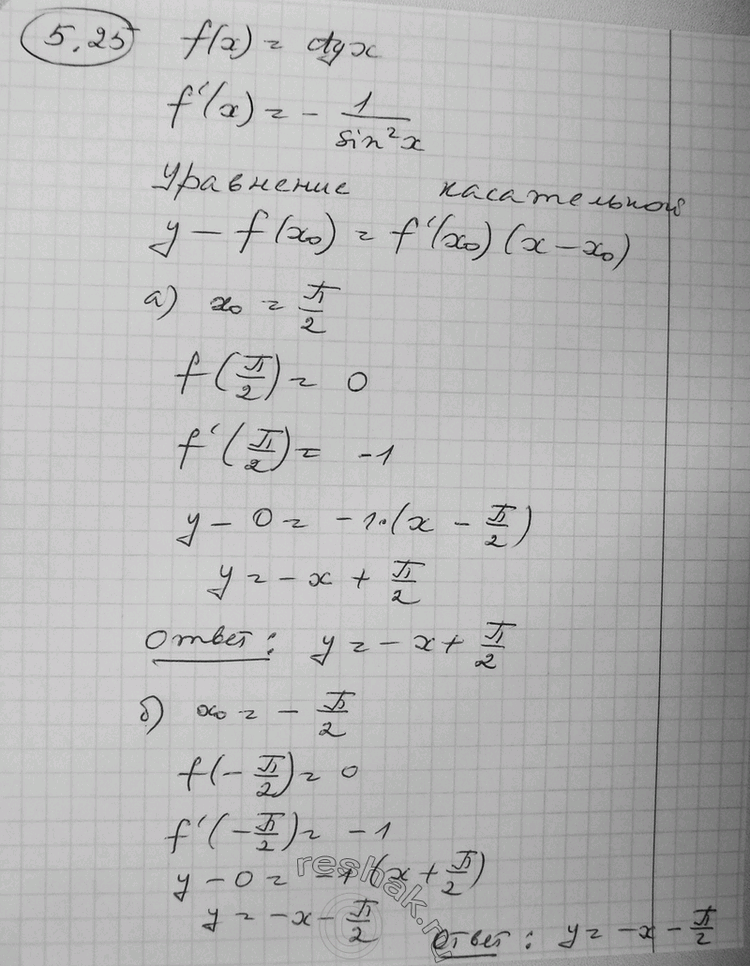 5.25 f(x) = ctgx
f'(x) = - 1/sin²x
Уравнение касательной
y - f(x₀) = f'(x₀)(x - x₀)
а) x₀ = π/2
f(π/2) = 0
f'(π/2) = -1
y - 0 = -1·(x - π/2)
y = -x + π/2
Ответ: y = -x + π/2
б) x₀ = - π/2
f(-π/2) = 0
f'(-π/2) = -1
y - 0 = -1(x + π/2)
y = -x - π/2
Ответ: y = -x - π/2
reshak.ru